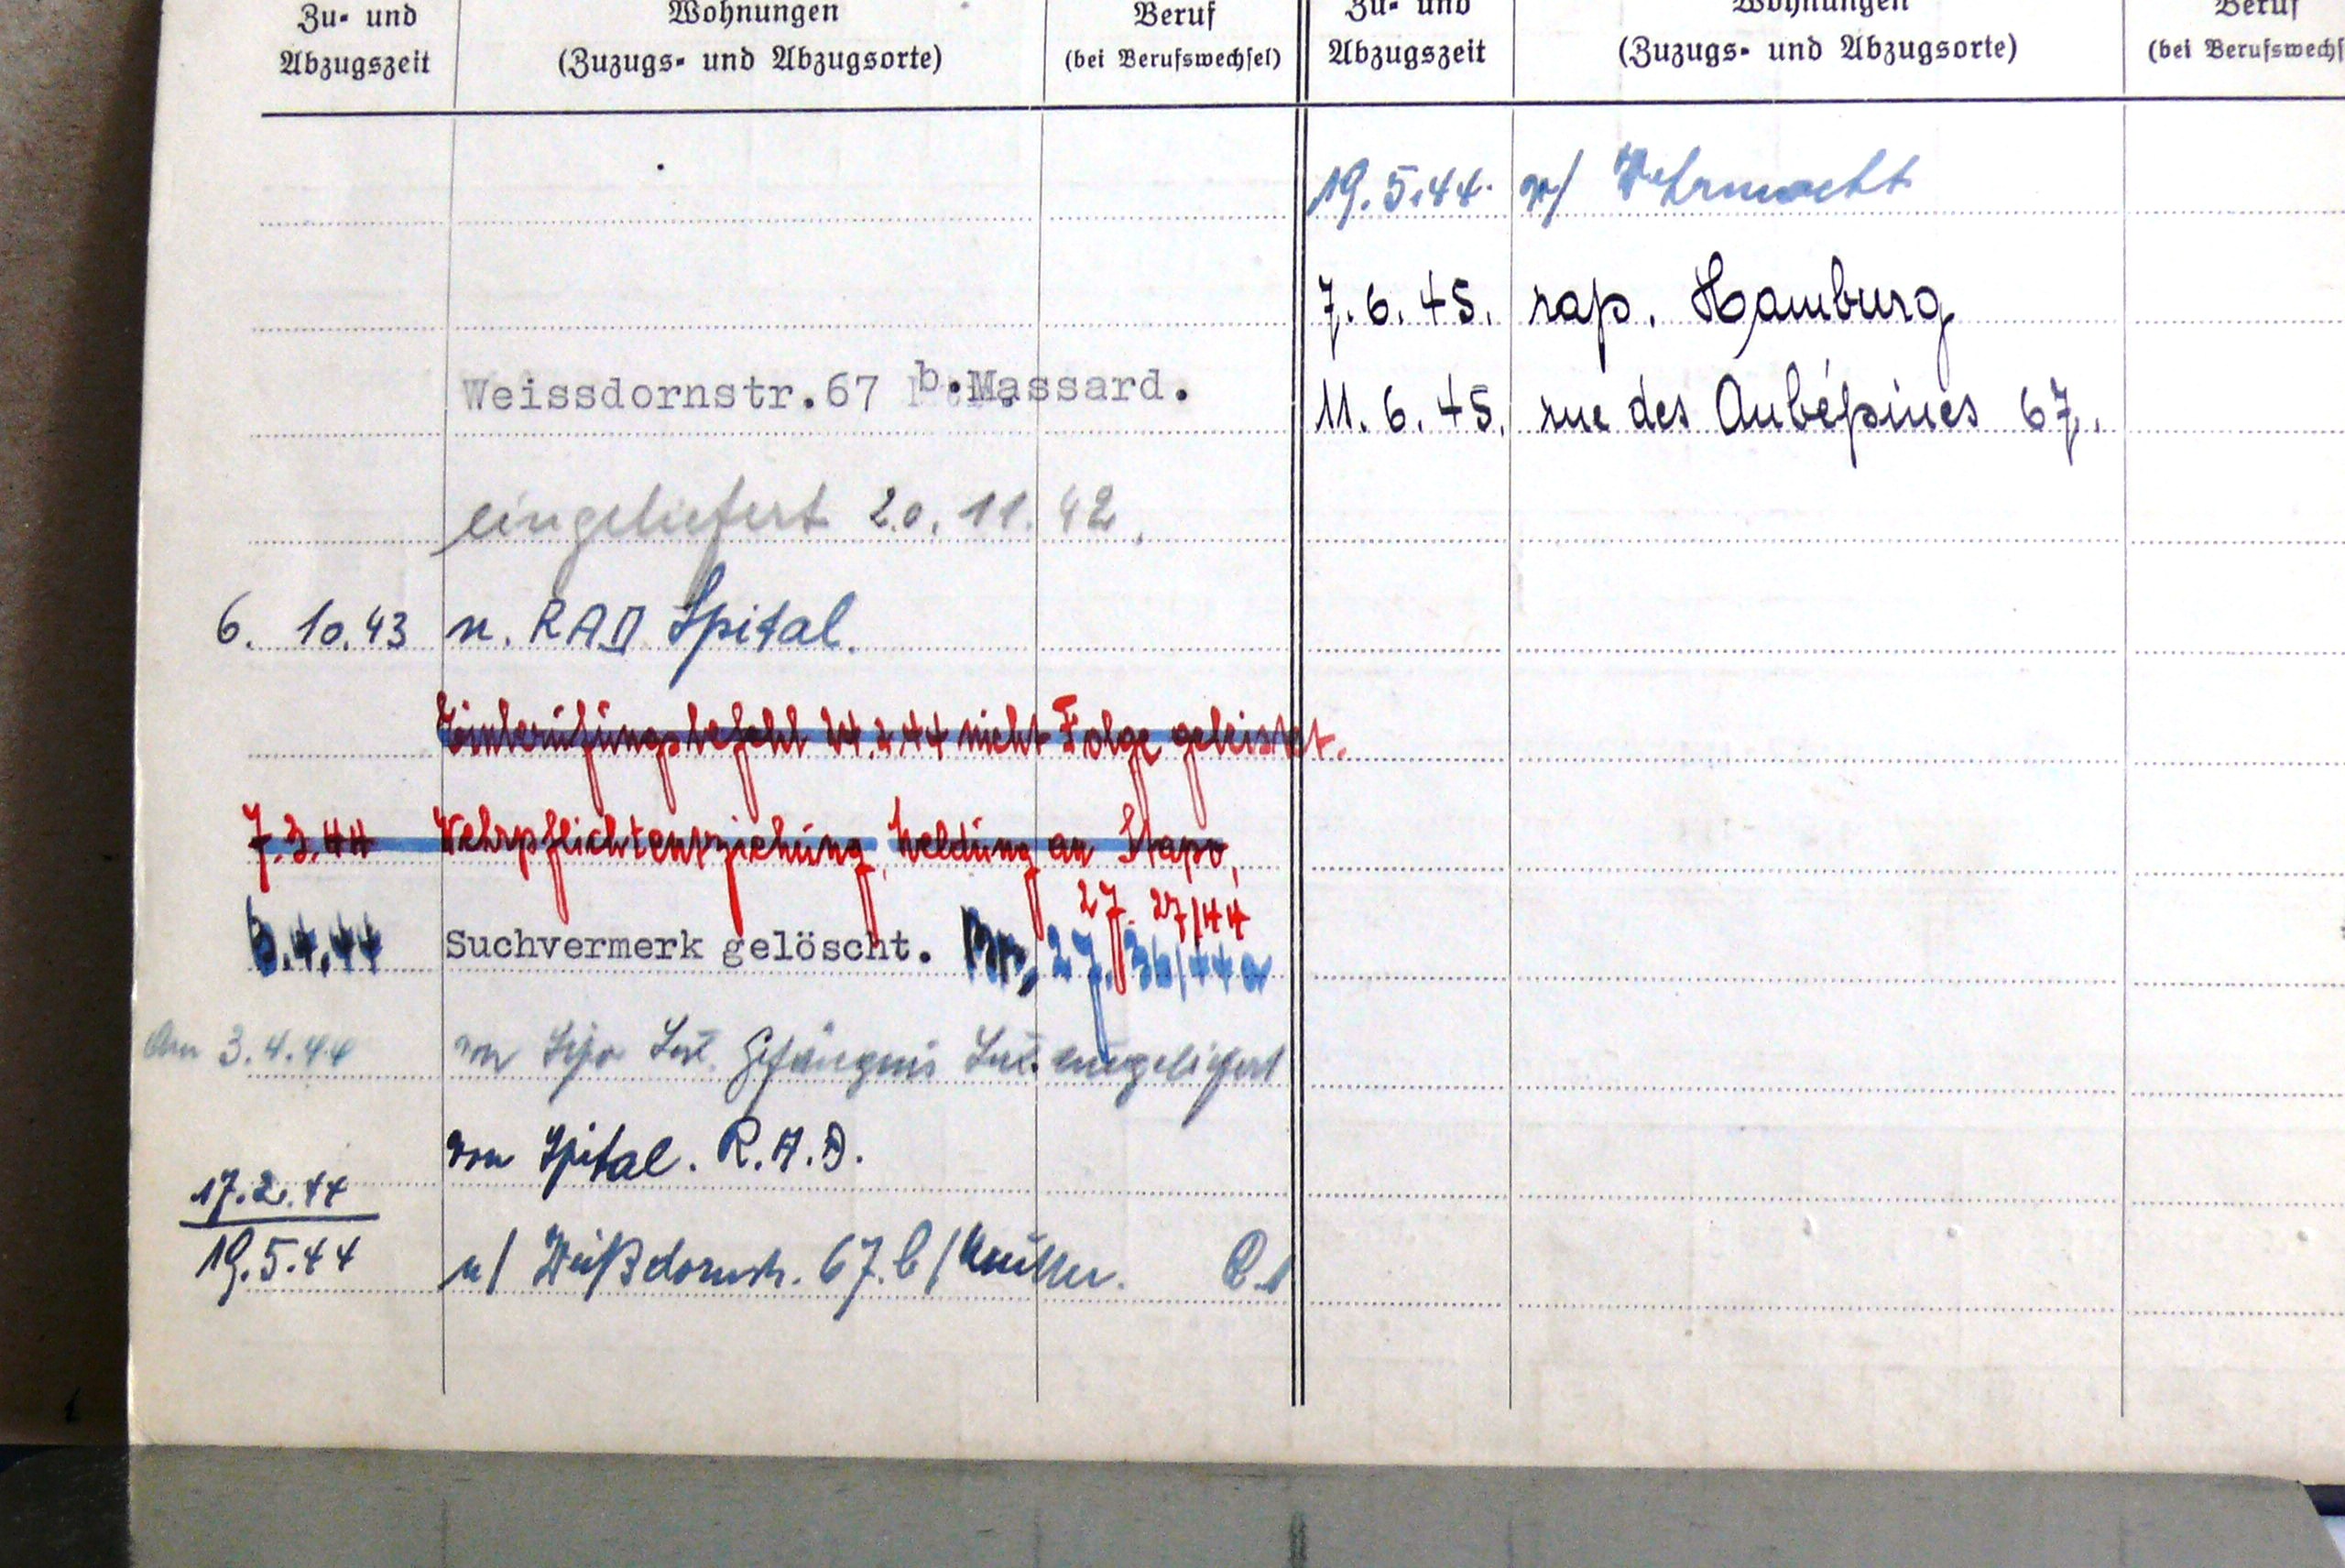 Zu- und Abzugszeit
Wohnungen (Zuzugs- und Abzugsorte)
Beruf (bei Berufswechsel)
Weissdornstr.67 b.Massard.
eingeliefert 20.11.42.
6. 10.43 n. RAD Spital.
Einberufungsbefehl 24.2.44 nicht Folge geleistet.
7.3.44 Wehrpflichtentziehung, Meldung an Stapo,
27. 27/44
6.4.44 Suchvermerk gelöscht. 27. 36/44
Am 3.4.44 von Sipo Lux. Gefängnis Lux. eingeliefert
von Spital. R.A.D.
17.2.44
19.5.44 n/ Weißdornstr. 67. b/ Müller.
Zu- und Abzugszeit
Wohnungen (Zuzugs- und Abzugsorte)
Beruf (bei Berufswechs
19.5.44. n/ Wehrmacht
7.6.45. rap. Hamburg
11.6.45. rue des Aubépines 67.